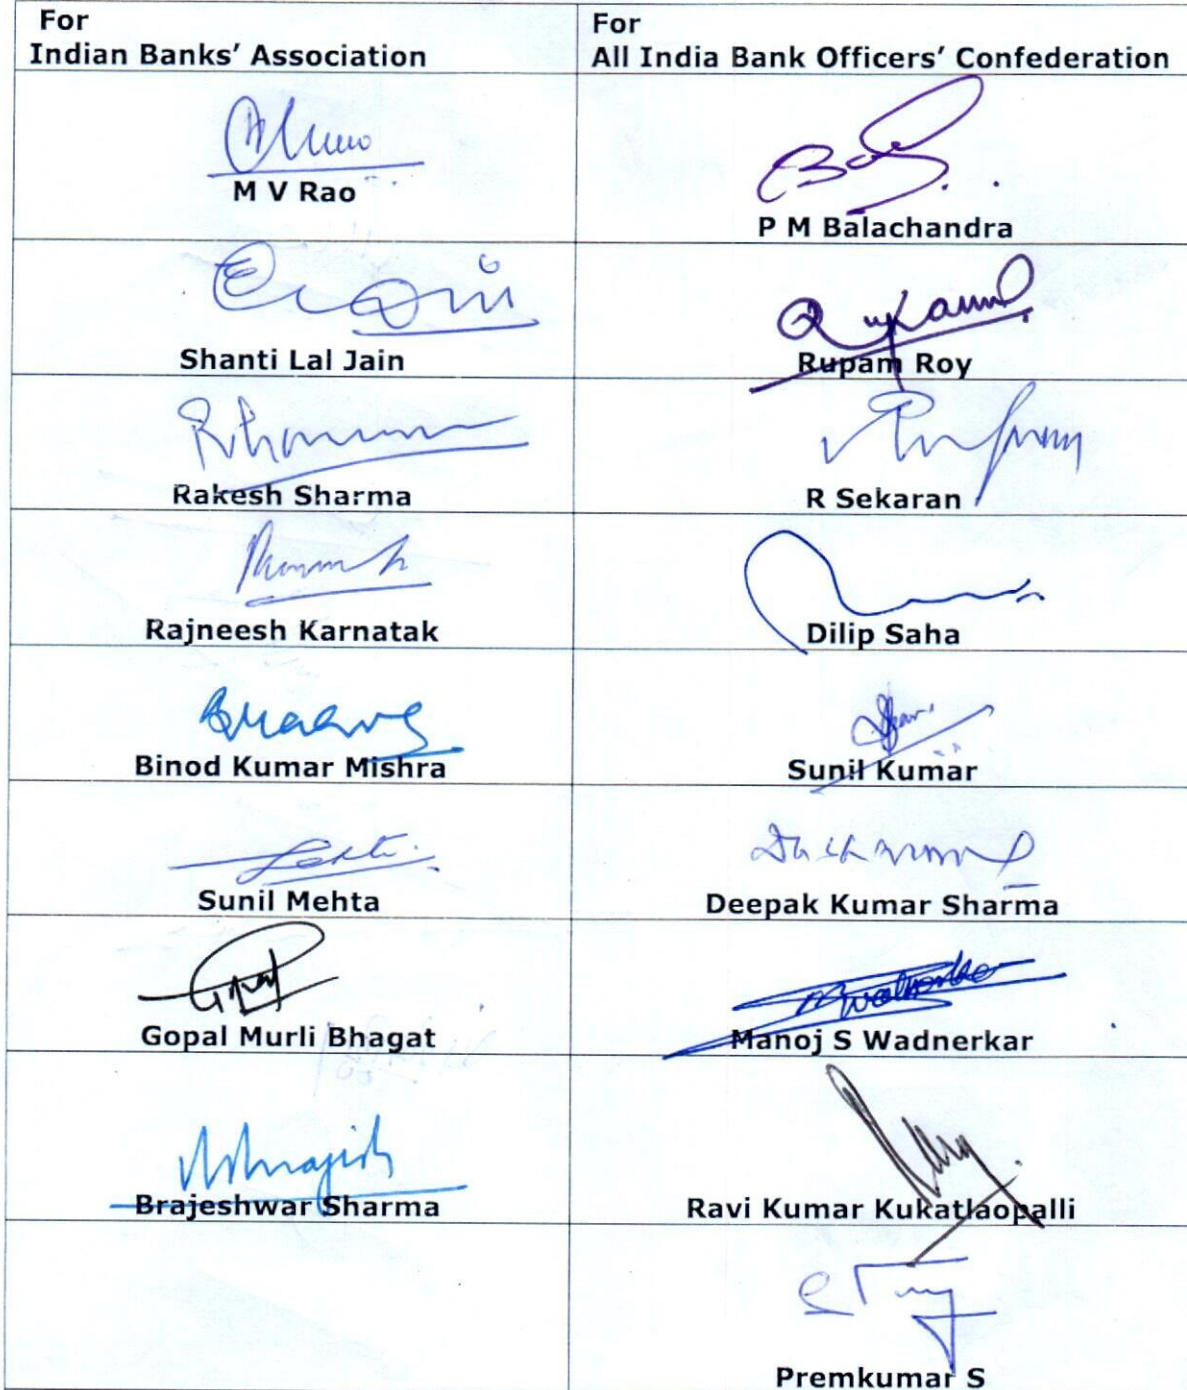 For
Indian Banks' Association
For
All India Bank Officers' Confederation
M V Rao
P M Balachandra
Shanti Lal Jain
Rupam Roy
Rakesh Sharma
R Sekaran
Rajneesh Karnatak
Dilip Saha
Binod Kumar Mishra
Sunil Kumar
Sunil Mehta
Deepak Kumar Sharma
Gopal Murli Bhagat
Manoj S Wadnerkar
Brajeshwar Sharma
Ravi Kumar Kukatlaopalli
Premkumar S